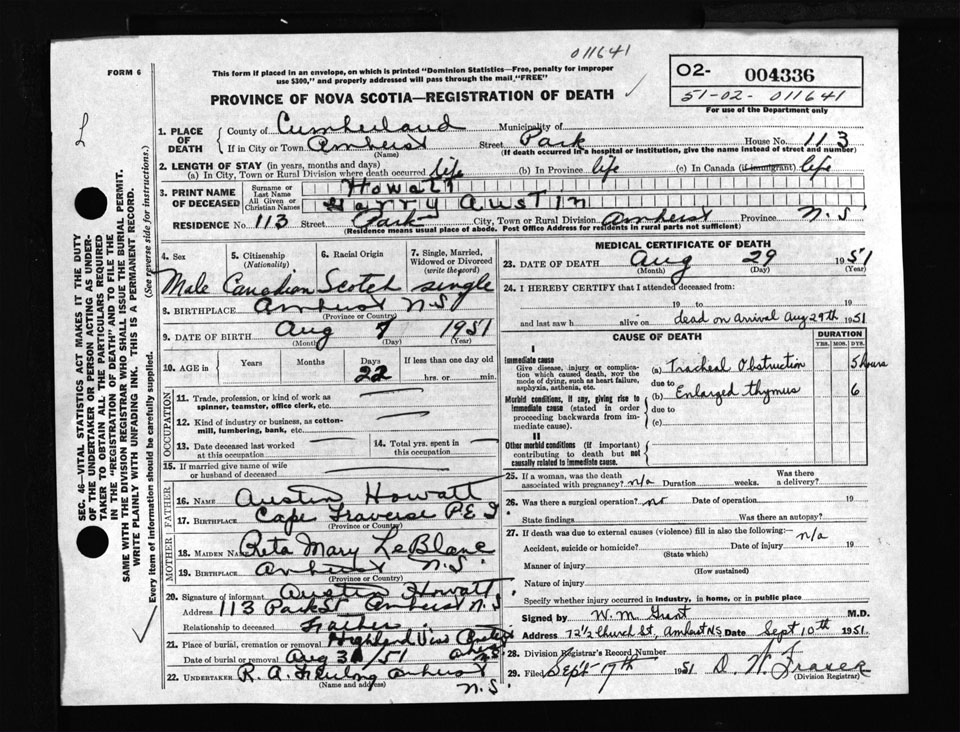 011641
FORM 6
This form if placed in an envelope, on which is printed "Dominion Statistics—Free, penalty for improper
use $300," and properly addressed will pass through the mail, "FREE"
O2- 004336
51-02- 011641
For use of the Department only
PROVINCE OF NOVA SCOTIA—REGISTRATION OF DEATH
SEC. 46—VITAL STATISTICS ACT MAKES IT THE DUTY
OF THE UNDERTAKER OR PERSON ACTING AS UNDER-
TAKER TO OBTAIN ALL THE PARTICULARS REQUIRED
IN THE "REGISTRATION OF DEATH" AND TO FILE THE
SAME WITH THE DIVISION REGISTRAR WHO SHALL ISSUE THE BURIAL PERMIT.
WRITE PLAINLY WITH UNFADING INK. THIS IS A PERMANENT RECORD.
Every item of information should be carefully supplied. (See reverse side for instructions.)
1. PLACE OF DEATH
County of Cumberland Municipality of
If in City or Town Amherst Street Park House No. 113
(Name) (If death occurred in a hospital or institution, give the name instead of street and number)
2. LENGTH OF STAY (in years, months and days)
(a) In City, Town or Rural Division where death occurred life (b) In Province life (c) In Canada (if immigrant) life
3. PRINT NAME OF DECEASED
Surname or Last Name Howatt
All Given or Christian Names Harry Austin
RESIDENCE No 113 Street Park City, Town or Rural Division Amherst Province N.S
(Residence means usual place of abode. Post Office Address for residents in rural parts not sufficient)
4. Sex
5. Citizenship (Nationality)
6. Racial Origin
7. Single, Married, Widowed or Divorced (write the word)
Male Canadian Scotch single
8. BIRTHPLACE Amherst N.S
(Province or Country)
9. DATE OF BIRTH Aug 7 1951
(Month) (Day) (Year)
10. AGE in Years Months Days 22 If less than one day old
hrs. or min.
OCCUPATION
11. Trade, profession, or kind of work as
spinner, teamster, office clerk, etc.
12. Kind of industry or business, as cotton-
mill, lumbering, bank, etc.
13. Date deceased last worked at this occupation
14. Total yrs. spent in this occupation
15. If married give name of wife
or husband of deceased
FATHER
16. NAME Austin Howatt
17. BIRTHPLACE Cape Traverse P E I
(Province or Country)
MOTHER
18. MAIDEN NAME Reta Mary LeBlanc
19. BIRTHPLACE Amherst N.S.
(Province or Country)
20. Signature of informant Austin Howatt
Address 113 Park St Amherst N.S
Relationship to deceased Father
21. Place of burial, cremation or removal Highland View
Date of burial or removal Aug 31/51
22. UNDERTAKER R. A. Amherst
(Name and address) N.S.
MEDICAL CERTIFICATE OF DEATH
23. DATE OF DEATH Aug 29 1951
(Month) (Day) (Year)
24. I HEREBY CERTIFY that I attended deceased from:
19 to 19
and last saw h alive on dead on arrival Aug 29th 1951
CAUSE OF DEATH DURATION
YRS. MOS. DYS.
I
Immediate cause
Give disease, injury or complica-
tion which caused death, NOT the
mode of dying, such as heart failure,
asphyxia, asthenia, etc.
(a) Tracheal Obstruction 5 hours
due to
(b) Enlarged thymus 6
Morbid conditions, if any, giving rise to
immediate cause (stated in order
proceeding backwards from im-
mediate cause).
due to
(c)
II
Other morbid conditions (if important)
contributing to death but not
causally related to immediate cause.
25. If a woman, was the death
associated with pregnancy? n/a Duration weeks. Was there a delivery?
26. Was there a surgical operation? no Date of operation 19
State findings Was there an autopsy?
27. If death was due to external causes (violence) fill in also the following:— n/a
Accident, suicide or homicide? Date of injury 19
(State which)
Manner of injury
(How sustained)
Nature of injury
Specify whether injury occurred in industry, in home, or in public place
Signed by W. M. Grant M.D.
Address 72 1/2 Church St, Amherst NS Date Sept 10th 1951
28. Division Registrar's Record Number
29. Filed Sept 17th 1951 D. W. Fraser
(Division Registrar)